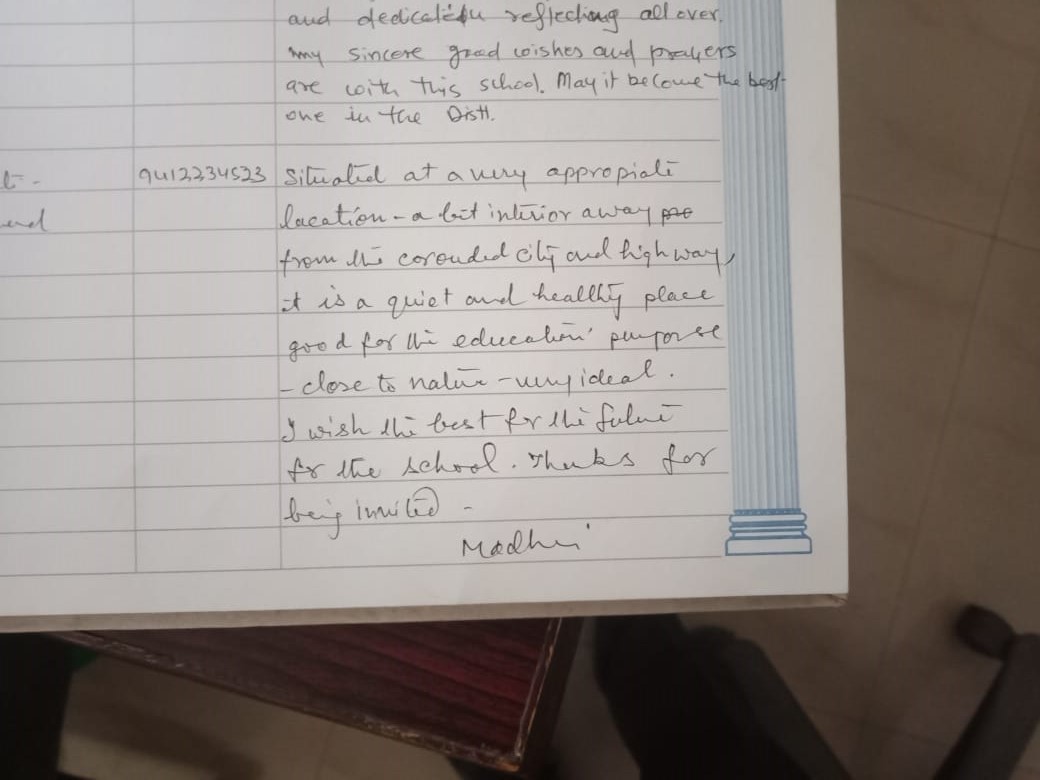 and dedication reflecting all over.
my sincere good wishes and prayers
are with this school. May it become the best
one in the Distt.
9412234523 Situated at a very appropiate
location - a bit interior away
from the corouded city and highway,
it is a quiet and healthy place
good for the education purpose
- close to nature - very ideal.
I wish the best for the future
for the school. Thanks for
being invited -